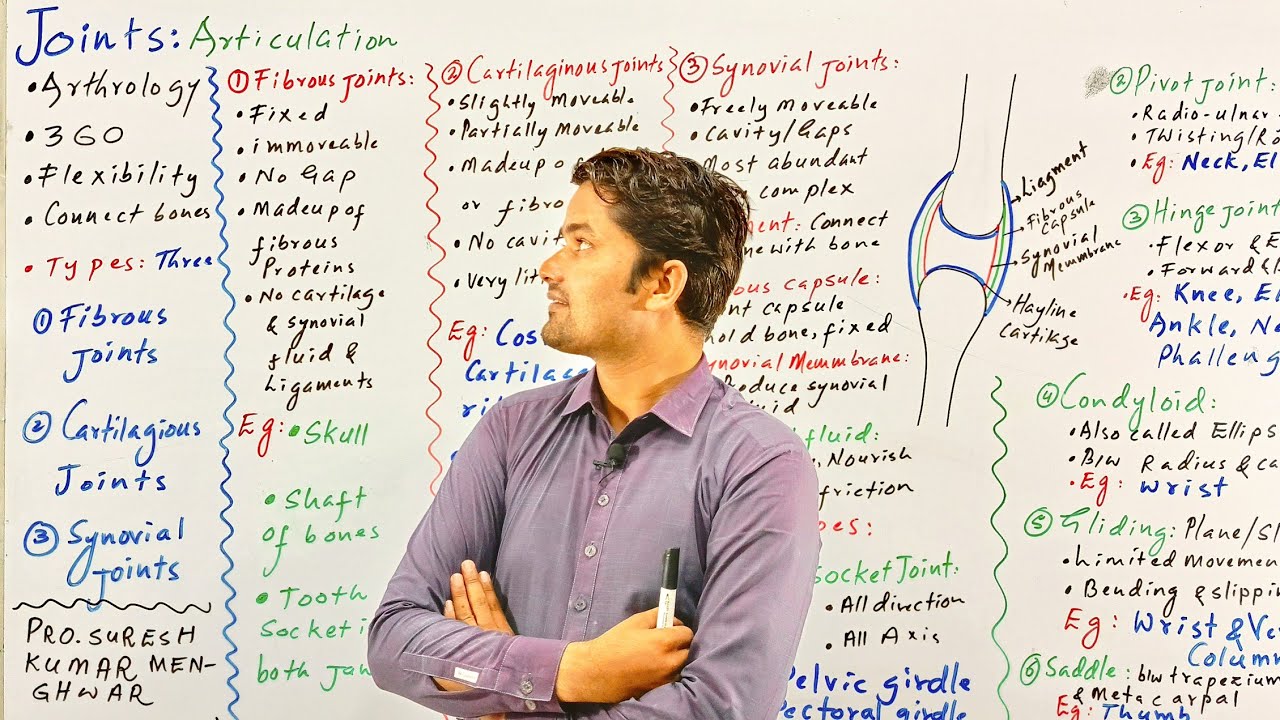 Joints: Articulation
• Arthrology
• 360
• Flexibility
• Connect bones
• Types: Three
① Fibrous
Joints
② Cartilagious
Joints
③ Synovial
Joints
PRO. SURESH
KUMAR MEN-
GHWAR
① Fibrous Joints:
• Fixed
• immoveable
• No Gap
• Madeup of
fibrous
Proteins
• No cartilage
& synovial
fluid &
Ligaments
Eg: • Skull
• Shaft
of bones
• Tooth
Socket i
both Jaw
② Cartilaginous Joints
• Slightly moveable
• Partially Moveable
• Madeup o
or fibro
• No cavit
• Very lit
Eg: Cos
Cartilage
ri
③ Synovial Joints:
• Freely moveable
• Cavity/Gaps
Most abundant
complex
ent: Connect
ne with bone
ous capsule:
nt capsule
hold bone, fixed
ynovial Memmbrane:
Produce synovial
uid
fluid:
, Nourish
friction
pes:
Socket Joint:
• All direction
• All Axis
Pelvic girdle
Pectoral girdle
Liagment
Fibrous
Capsule
Synovial
Memmbrane
Hayline
Cartilage
② Pivot Joint:
• Radio-ulnar
• Twisting/Ro
• Eg: Neck, El
③ Hinge Joint
• Flexor & E
• Forward &
• Eg: Knee, El
Ankle, Ne
Phalleng
④ Condyloid:
• Also called Ellips
• B/w Radius & Ca
• Eg: Wrist
⑤ Gliding: Plane/Sl
• Limited Movemen
• Bending & slippin
Eg: Wrist & Ve
Column
⑥ Saddle: b/w trapezium
& Metacarpal
Eg: Thumb